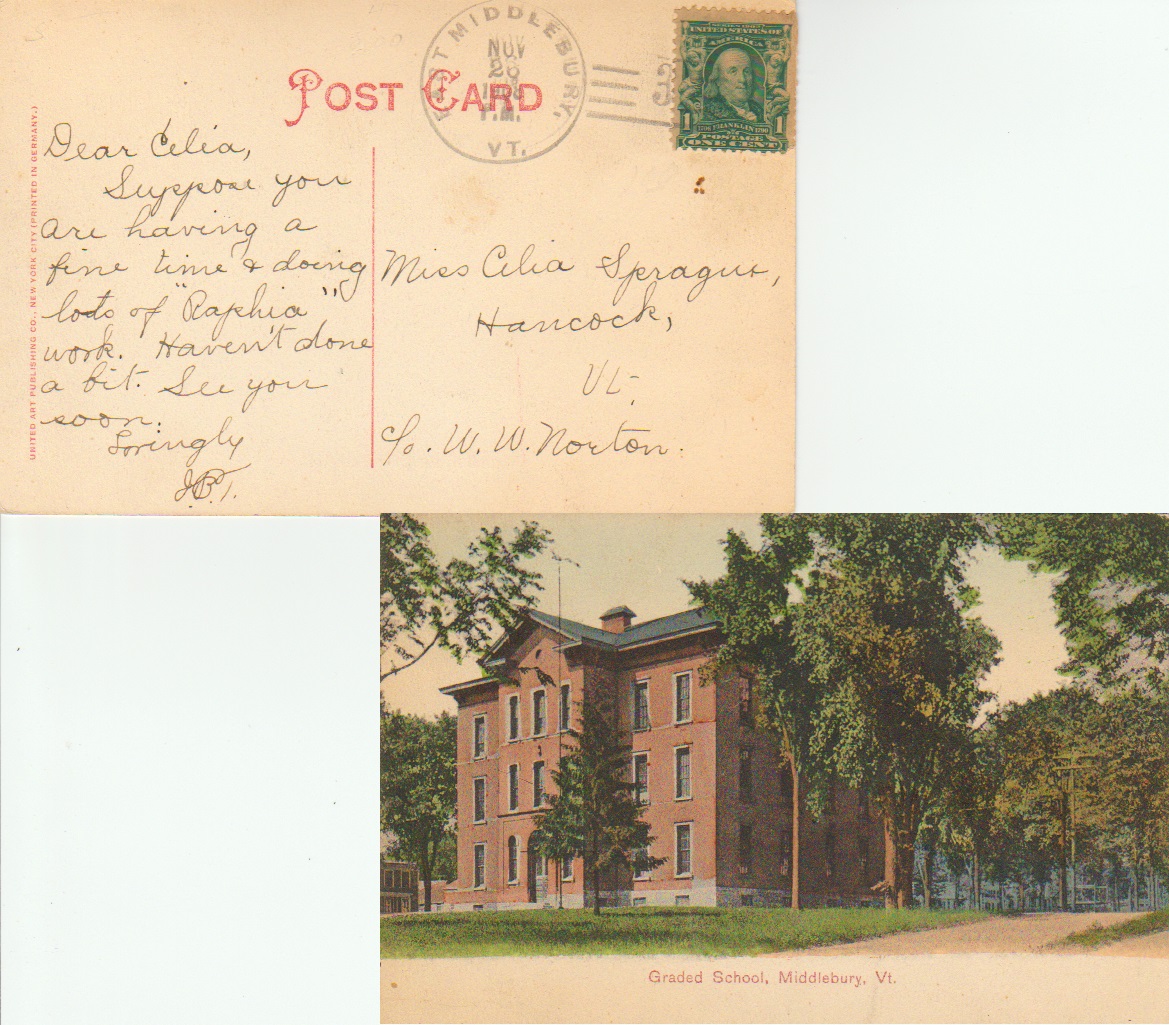 POST CARD
EAST MIDDLEBURY,
NOV
1908
P.M.
VT.
SERIES 1902
UNITED STATES OF
AMERICA
1 1706 FRANKLIN 1790 1
POSTAGE
ONE CENT
UNITED ART PUBLISHING CO., NEW YORK CITY (PRINTED IN GERMANY.)
Dear Celia,
Suppose you
are having a
fine time & doing
lots of "Raphia"
work. Haven't done
a bit. See you
soon.
Lovingly
J.B.T.
Miss Celia Sprague,
Hancock,
Vt.
c/o. W. W. Norton.
Graded School, Middlebury, Vt.